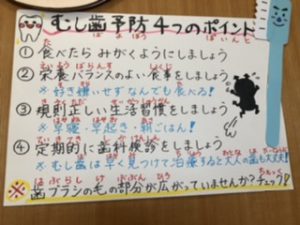 むし歯予防4つのポイント
① 食べたら みがくようにしましょう
② 栄養バランスのよい食事をしましょう
※好き嫌いせずなんでも食べる!
③ 規則正しい生活習慣をしましょう
※早寝・早起き・朝ごはん!
④ 定期的に歯科検診をしましょう
※むし歯は早く見つけて治療すると大人の歯も大丈夫!
※歯ブラシの毛の部分が広がっていませんか?チェック!